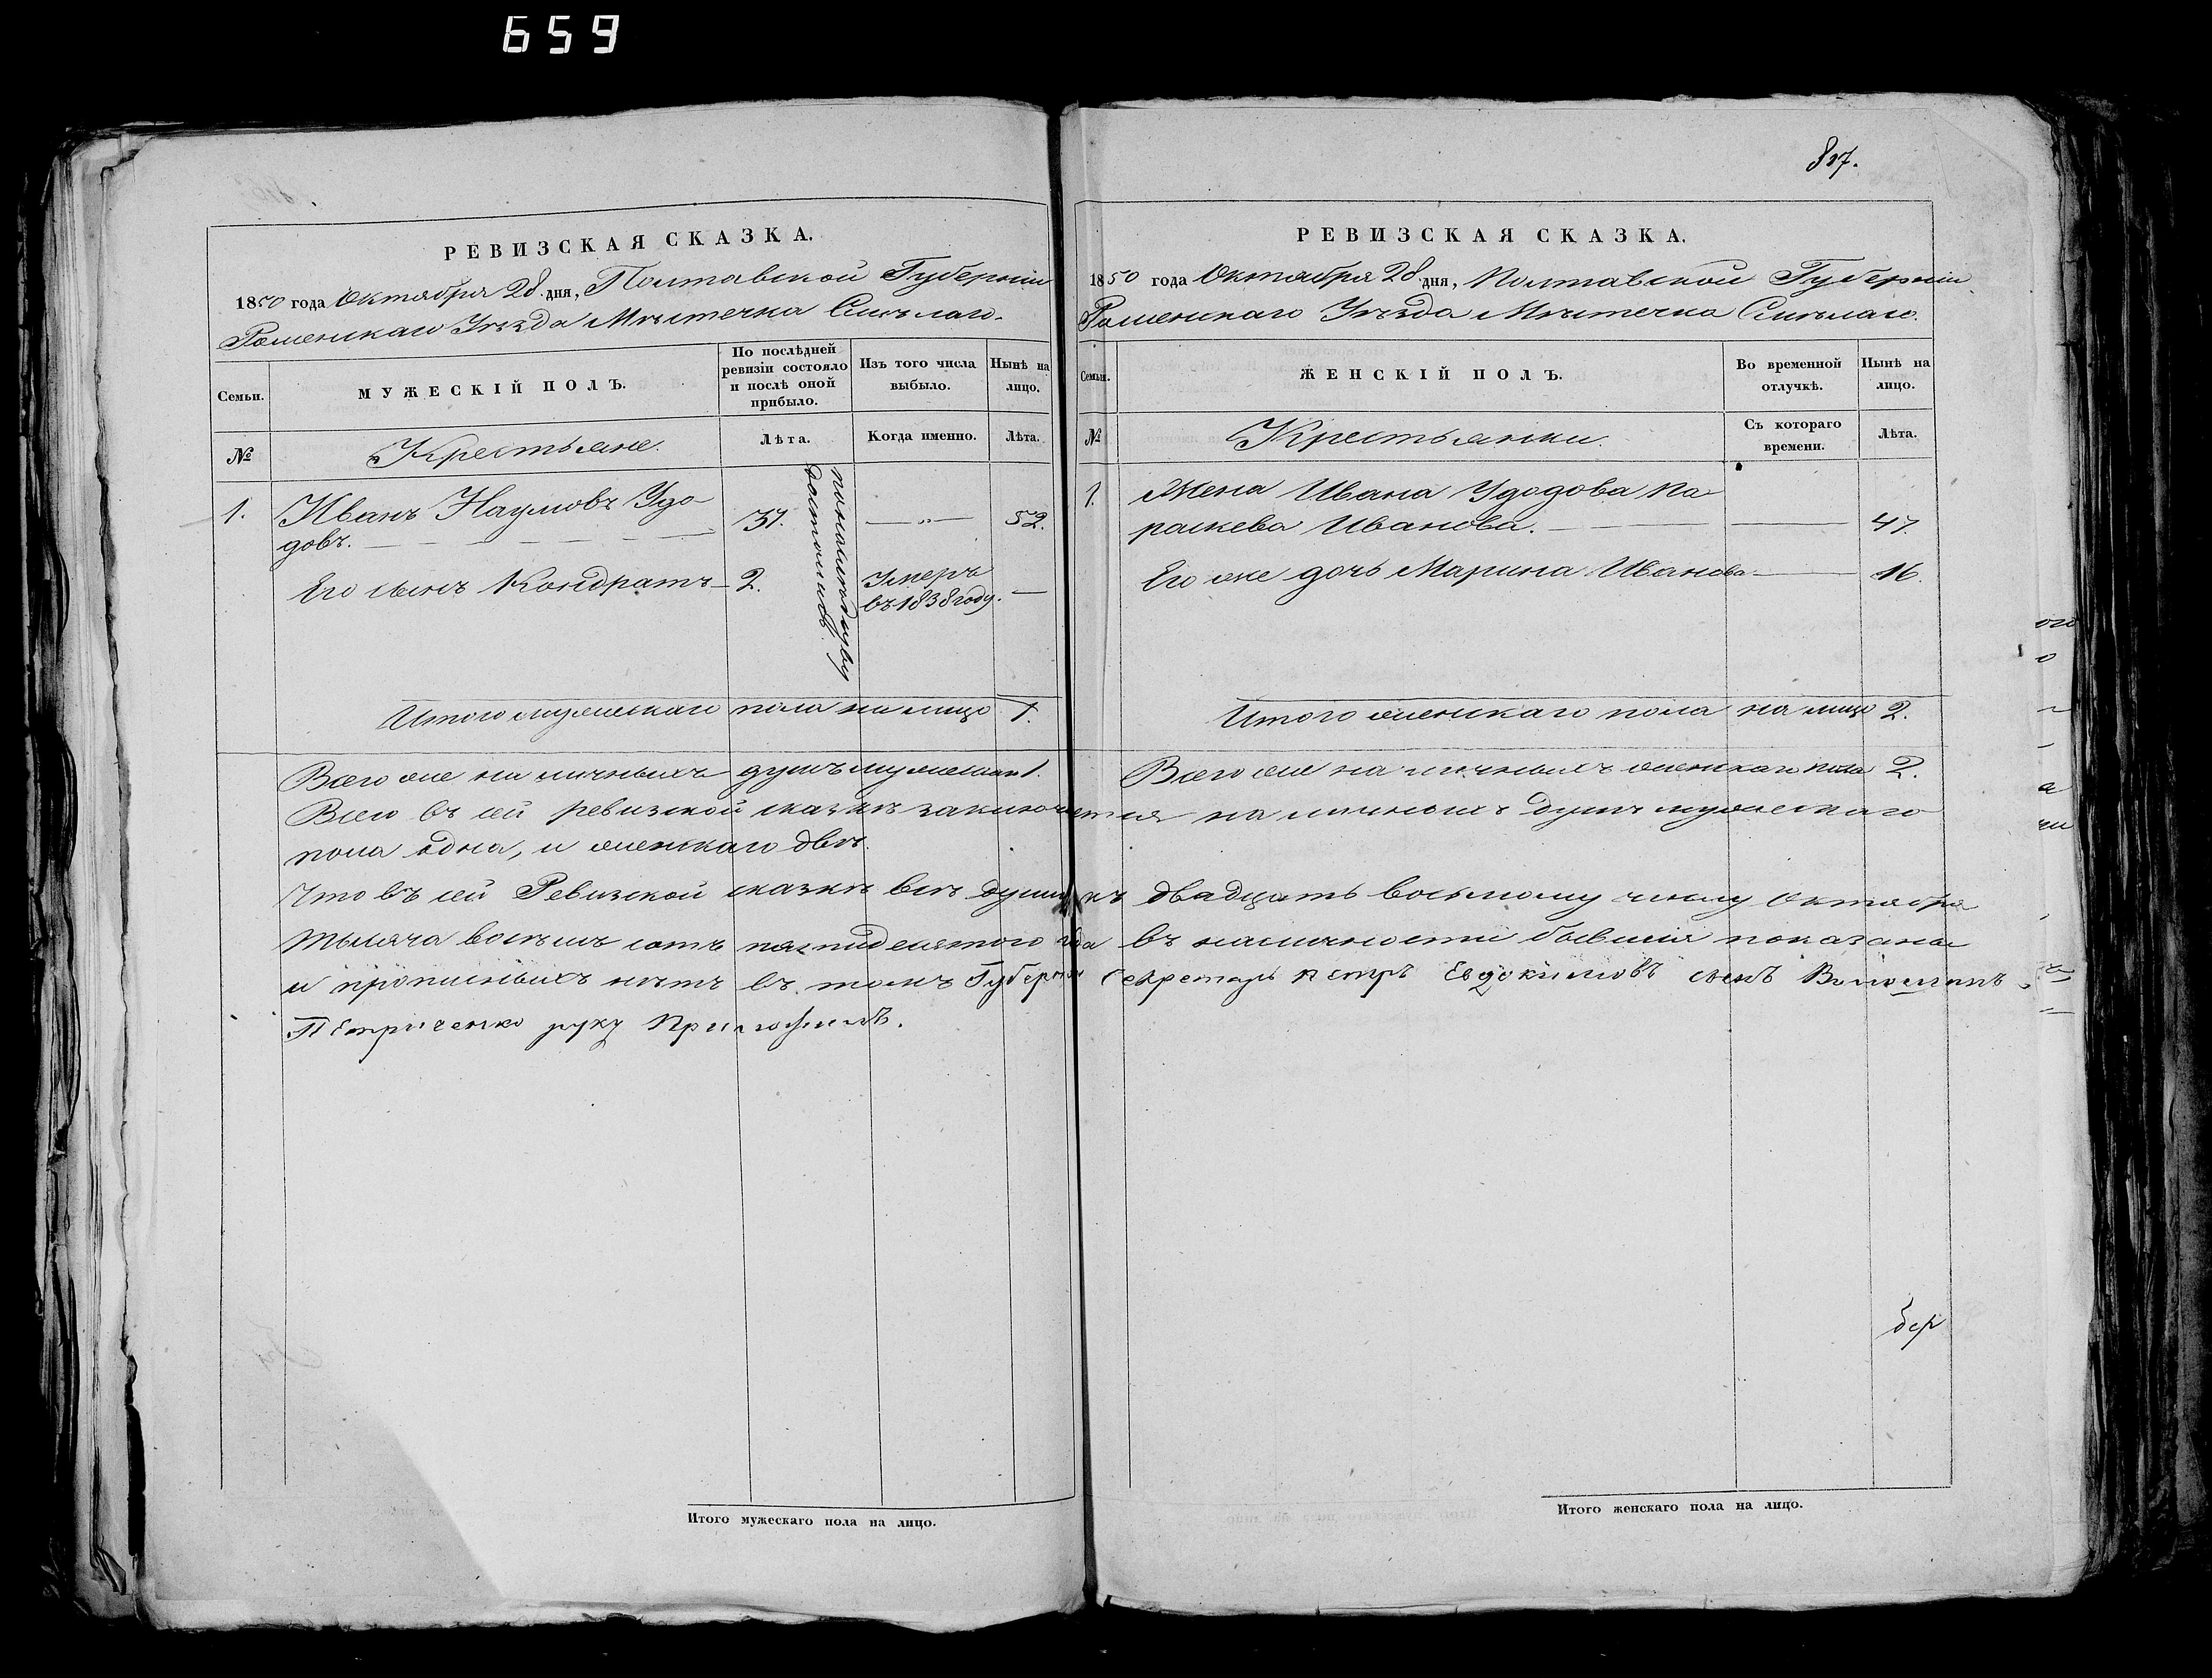 659
РЕВИЗСКАЯ СКАЗКА.
1850 года Октября 28 дня, Полтавской Губерніи
Роменскаго Уѣзда Мѣстечка Смѣлаго.
Семьи.
МУЖЕСКІЙ ПОЛЪ.
По послѣдней ревизіи состояло и послѣ оной прибыло.
Изъ того числа выбыло.
Нынѣ на лицо.
№
Крестьяне.
Лѣта.
Когда именно.
Лѣта.
1. Иванъ Наумовъ Удо
довъ. 37. — „ — 52.
Его сынъ Кондратъ 2. Умеръ
въ 1838 году. —
Итого мужескаго пола на лицо 1.
Всего же на личныхъ душъ мужескаго 1.
РЕВИЗСКАЯ СКАЗКА.
1850 года Октября 28 дня, Полтавской Губерніи
Роменскаго Уѣзда Мѣстечка Смѣлаго.
Семьи.
ЖЕНСКІЙ ПОЛЪ.
Во временной отлучкѣ.
Нынѣ на лицо.
№
Крестьянки.
Съ котораго времени.
Лѣта.
1. Жена Ивана Удодова Па
раскева Иванова. — 47.
Его же дочь Марина Иванова — 16.
Итого женскаго пола на лицо 2.
Всего же на личныхъ женскаго пола 2.
Всего въ сей ревизской сказкѣ заключается на личныхъ душъ мужескаго
пола одна, и женскаго двѣ.
Что въ сей Ревизской сказкѣ всѣ души къ двадцать восьмому числу Октября
тысяча восемь сотъ пятидесятого года въ наличности бывшія показаны
и прописныхъ нѣтъ въ томъ Губерни Секретарь Петръ Евдокимовъ сынъ
Петриченко руку Приложилъ.
Итого мужескаго пола на лицо.
Итого женскаго пола на лицо.